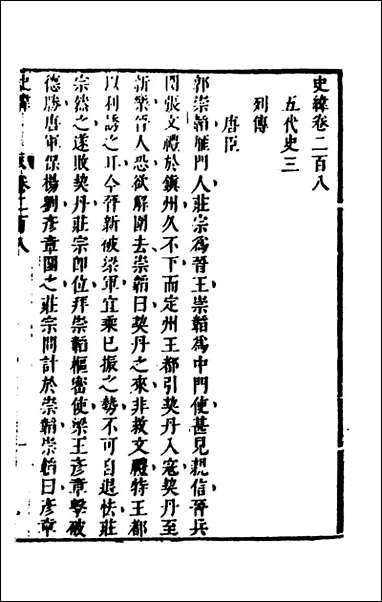 史緯卷二百八
五代史三
列傳
唐臣
郭崇韜雁門人莊宗爲晉王崇韜爲中門使甚見親信晉兵
圍張文禮於鎮州久不下而定州王都引契丹入寇契丹至
新樂晉人恐欲解圍去崇韜曰契丹之來非救文禮特王都
以利誘之耳今晉新破梁軍宜乘已振之勢不可自退怯莊
宗然之遂敗契丹莊宗即位拜崇韜樞密使梁王彥章擊破
德勝唐軍保楊劉彥章圍之莊宗問計於崇韜崇韜曰彥章
史緯 卷二百八